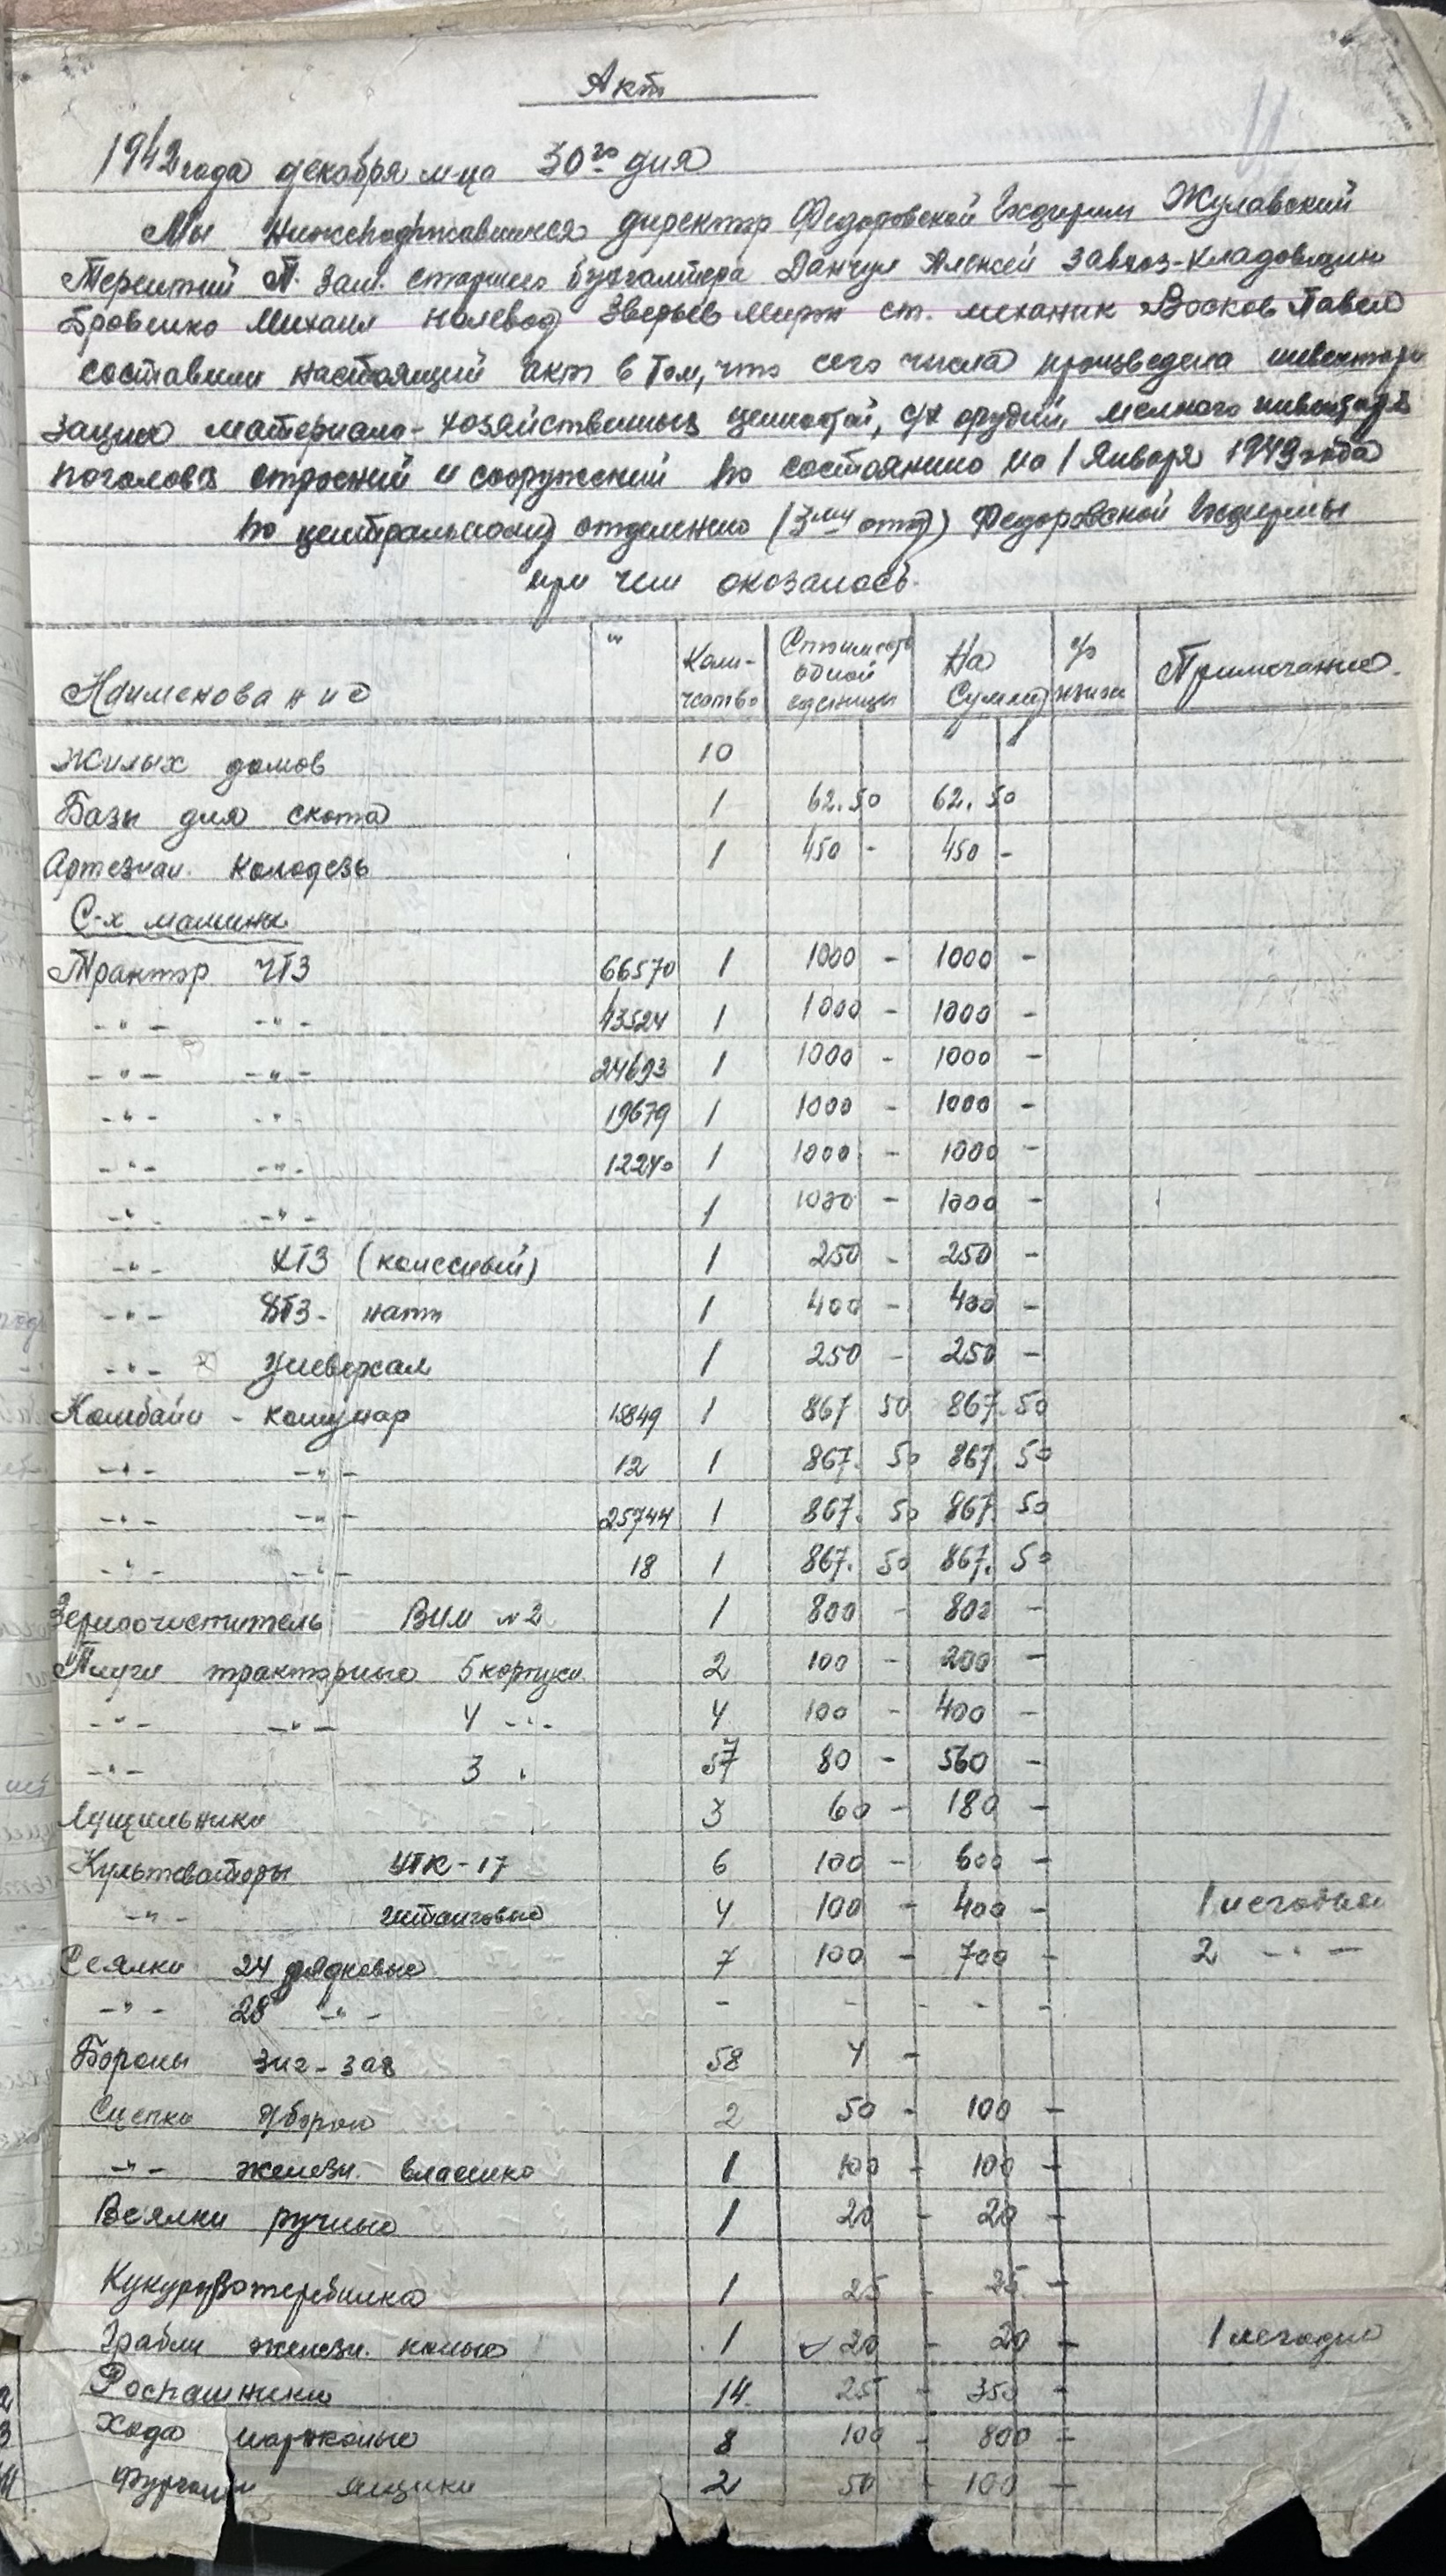 Акт
1942 года декабря м-ца 30го дня
Мы директор Федоровской Жулавский
Терентий П. Зам. старшего бухгалтера Данчул Алексей завхоз-кладовщик
Бровенко Михаил полевод Зверьев Мирон ст. механик Восков Павел
составили настоящий акт в том, что сего числа произведена инвентари
зация материало-хозяйственных ценностей, с/х орудий, мелкого инвентаря
поголовья строений и сооружений по состоянию на 1 Января 1943 года
по центральному отделению (3му отд) Федоровской
при чем оказалось.
Наименование Коли-чество Стоимость одной единицы На Сумму % Примечание.
Жилых домов 10
Базы для скота 1 62.50 62.50
Артезиан. колодезь 1 450 - 450 -
С-х машины
Трактор ЧТЗ 66570 1 1000 - 1000 -
-"- -"- 43524 1 1000 - 1000 -
-"- -"- 24693 1 1000 - 1000 -
-"- -"- 19679 1 1000 - 1000 -
-"- -"- 12240 1 1000 - 1000 -
-"- -"- 1 1000 - 1000 -
-"- ХТЗ (колесный) 1 250 - 250 -
-"- нати 1 400 - 400 -
-"- Униеверсал 1 250 - 250 -
Комбайн - комунар 15849 1 867 50 867.50
-"- -"- 12 1 867. 50 867. 50
-"- -"- 25744 1 867. 50 867. 50
-"- -"- 18 1 867. 50 867. 50
Зерноочиститель ВИМ №2 1 800 - 800 -
Плуги тракторные 5 корпусн. 2 100 - 200 -
-"- -"- 4 -"- 4 100 - 400 -
-"- 3 " 7 80 - 560 -
Лущильники 3 60 - 180 -
Культоваторы УТК-17 6 100 - 600 -
-"- штанговые 4 100 - 400 - 1 негодный
Сеялки 24 рядковые 7 100 - 700 - 2 -"-
-"- 28 -"- - - - - -
Бороны зиг-заг 58 4 -
Сцепка 2 50 - 100 -
-"- железн. 1 100 - 100 -
Веялки ручные 1 20 - 20 -
1 25 - 25 -
Грабли железн. конные 1 20 - 20 - 1 негодно
Роспашники 14 25 - 350 -
Хода пароконые 8 100 - 800 -
ящики 2 50 - 100 -